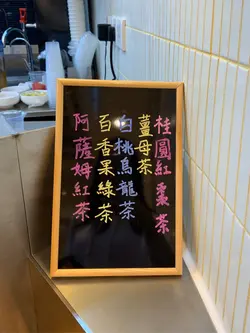 桂圓紅棗茶
薑母茶
白桃烏龍茶
百香果綠茶
阿薩姆紅茶